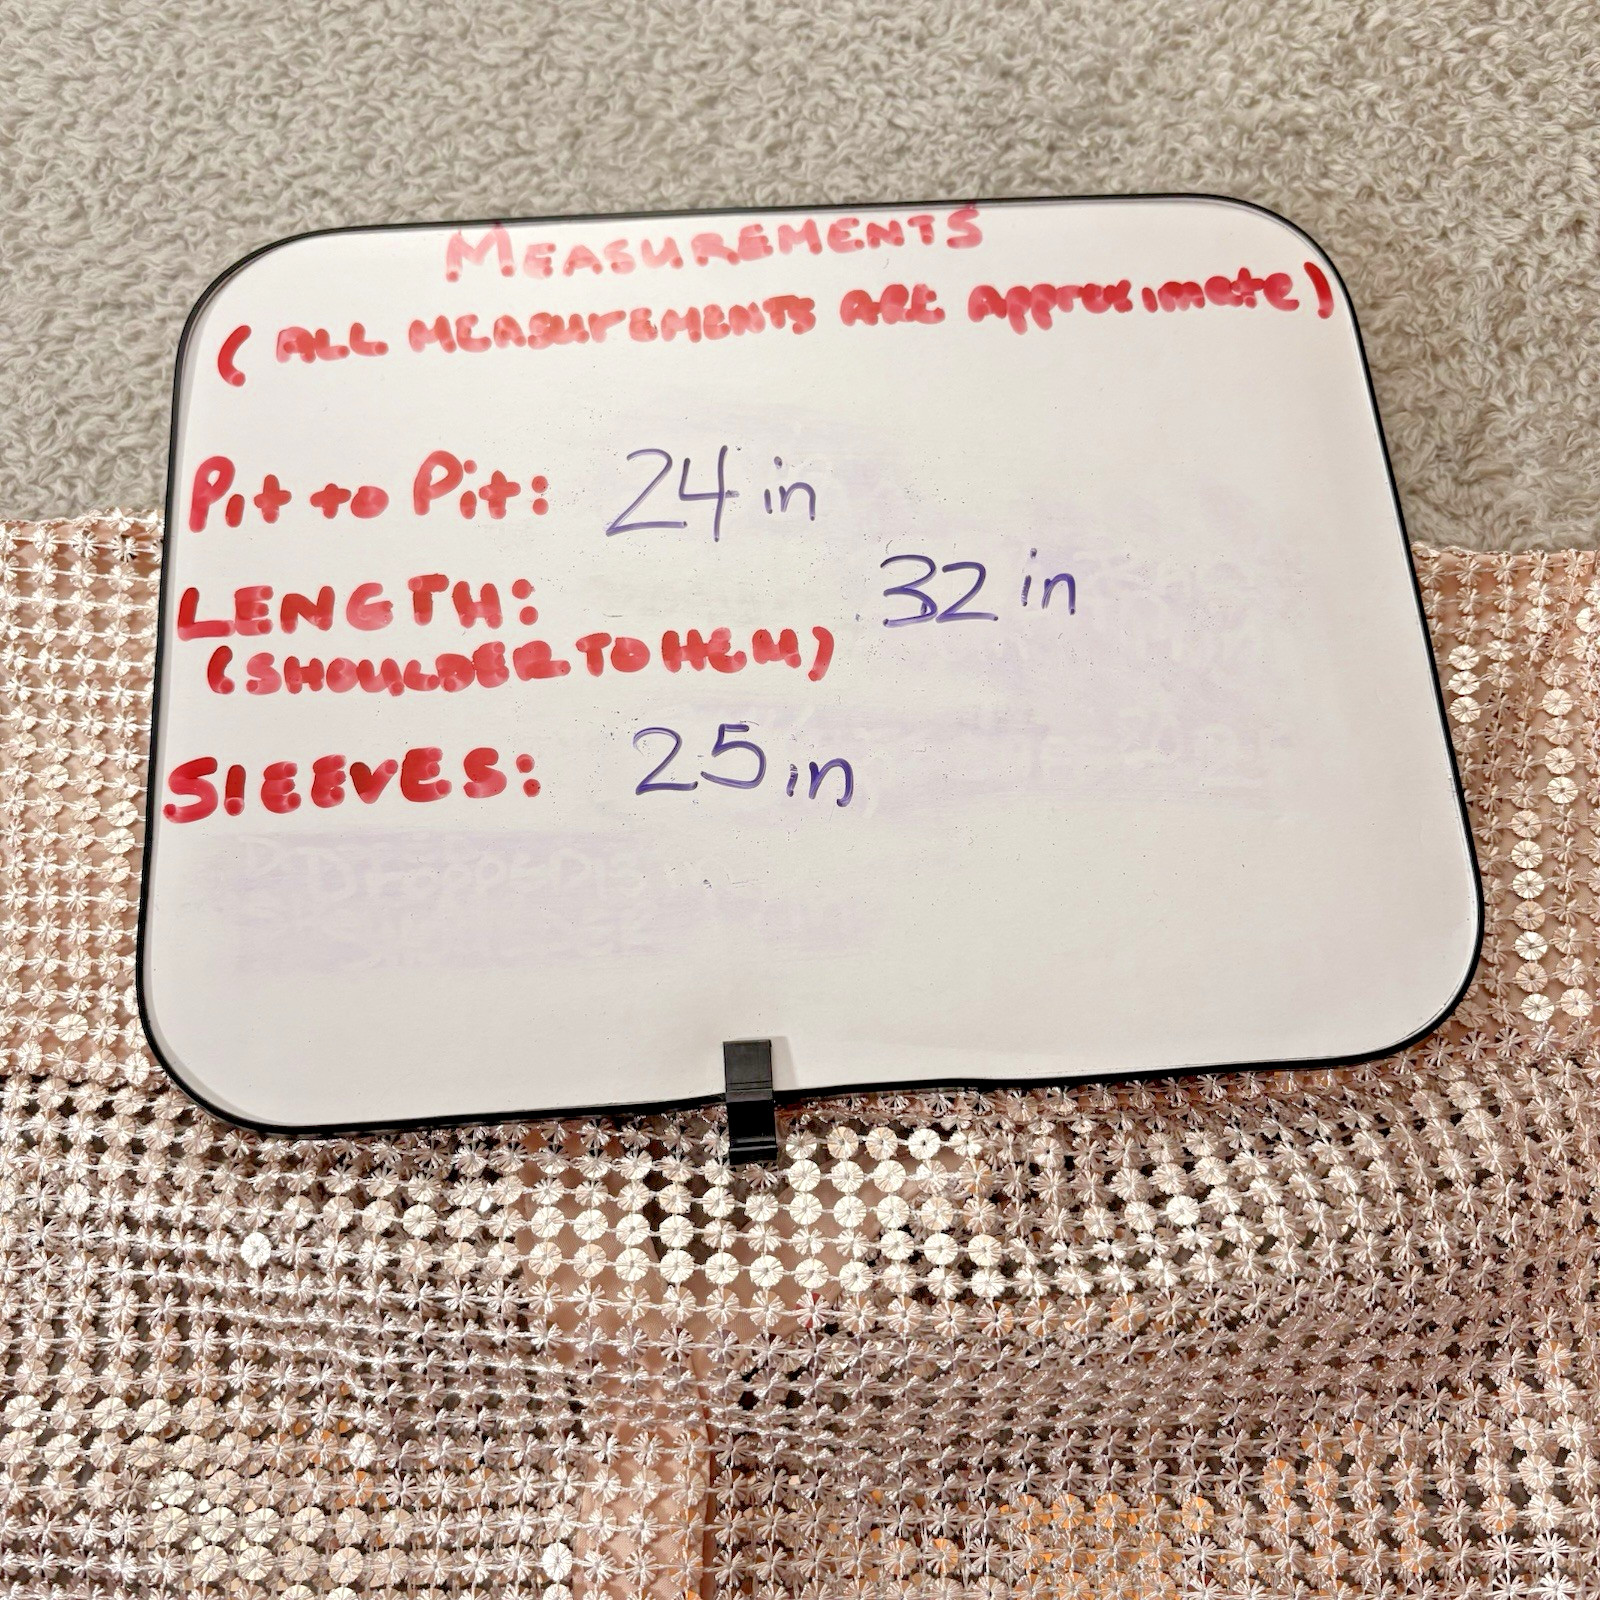 MEASUREMENTS
(ALL MEASUREMENTS ARE Approximate)
Pit to Pit: 24 in
LENGTH: 32 in
(SHOULDER TO HEM)
SLEEVES: 25 in